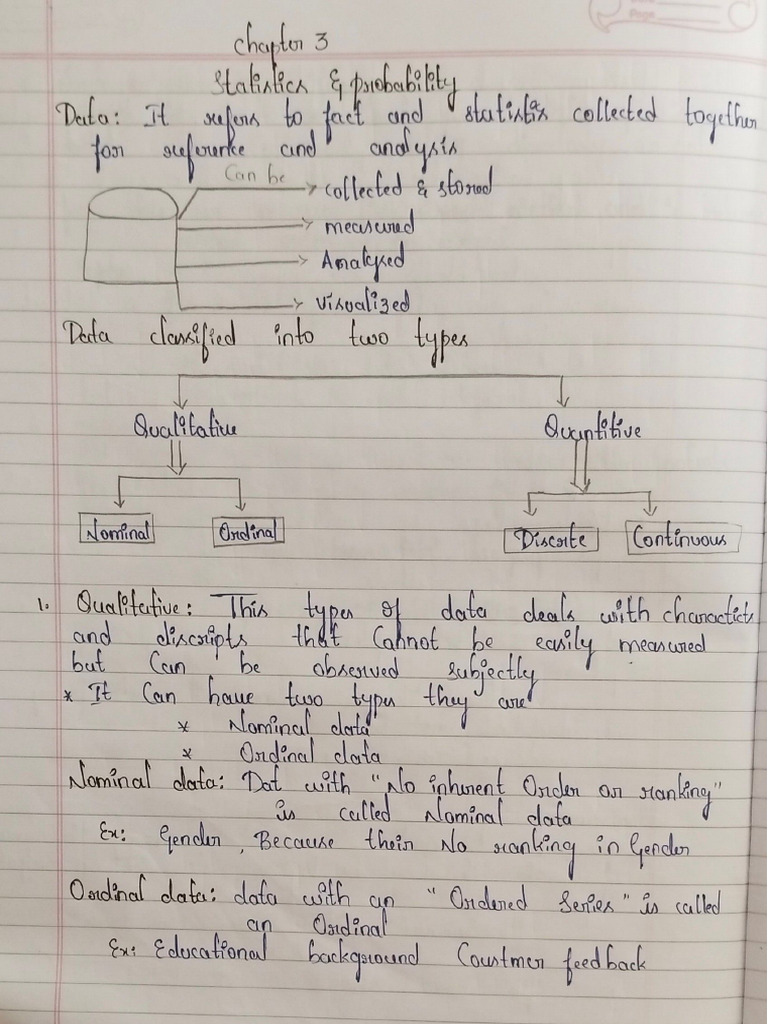 Chapter 3
Statistics & probability
Data: It refers to fact and statistix collected together
for reference and analysis
Can be
collected & stored
measured
Analysed
Visualized
Data classified into two types
Qualitative Quantitive
Nominal Ordinal Discrete Continuous
1. Qualitative: This types of data deals with
and discripts that Cannot be easily measured
but Can be observed subjectly
* It Can have two types they are
* Nominal data
* Ordinal data
Nominal data: Dat with "No inherent Order or ranking"
is called Nominal data
Ex: Gender, Because their No ranking in Gender
Ordinal data: data with an "Ordered Series" is called
an Ordinal
Ex: Educational background Coustmer feedback